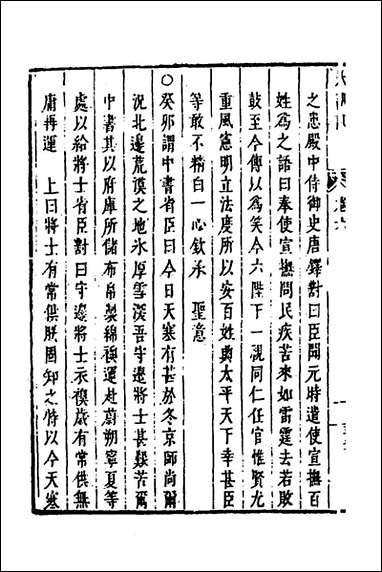 之患殿中侍御史唐鐸對曰臣聞元時遣使宣撫百
姓為之語曰奉使宣撫問民疾苦來如雷霆去若敗
鼓至今傳以為笑今六陛下一視同仁任官惟賢尤
重風憲明立法度所以安百姓興太平天下幸甚臣
等敢不精白一心欽承　聖意
○癸卯謂中書省臣曰今日天寒有甚於冬京師尚爾
況北邊荒漠之地氷厚雪深吾守邊將士甚艱苦爾
中書其以府庫所儲布帛製綿襖運赴蔚朔寧夏等
處以給將士省臣對曰守邊將士衣襖歲有常供無
庸再運　上曰將士有常供朕固知之特以今天寒